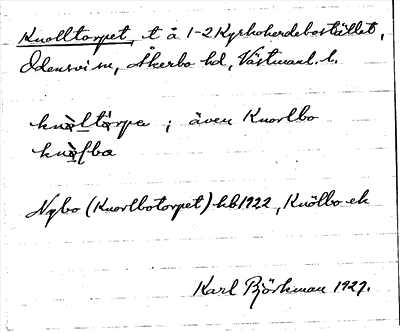 Knolltorpet, t å 1-2 Kyrkoherdebostället,
Odensvi sn, Åkerbo hd, Västmanl. l.
knòltárpa ; även Knorlbo
Nybo (Knorlbotorpet) hb 1922, Knölbo ek
Karl Björkman 1927.